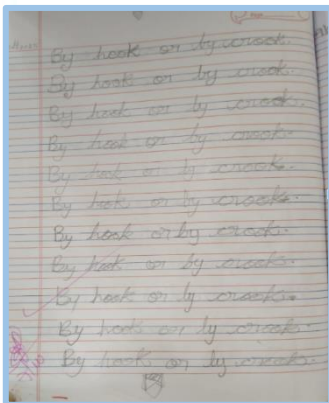 By hook or by crook.
By hook or by crook.
By hook or by crook.
By hook or by crook.
By hook or by crook.
By hook or by crook.
By hook or by crook.
By hook or by crook.
By hook or by crook.
By hook or by crook.
By hook or by crook.